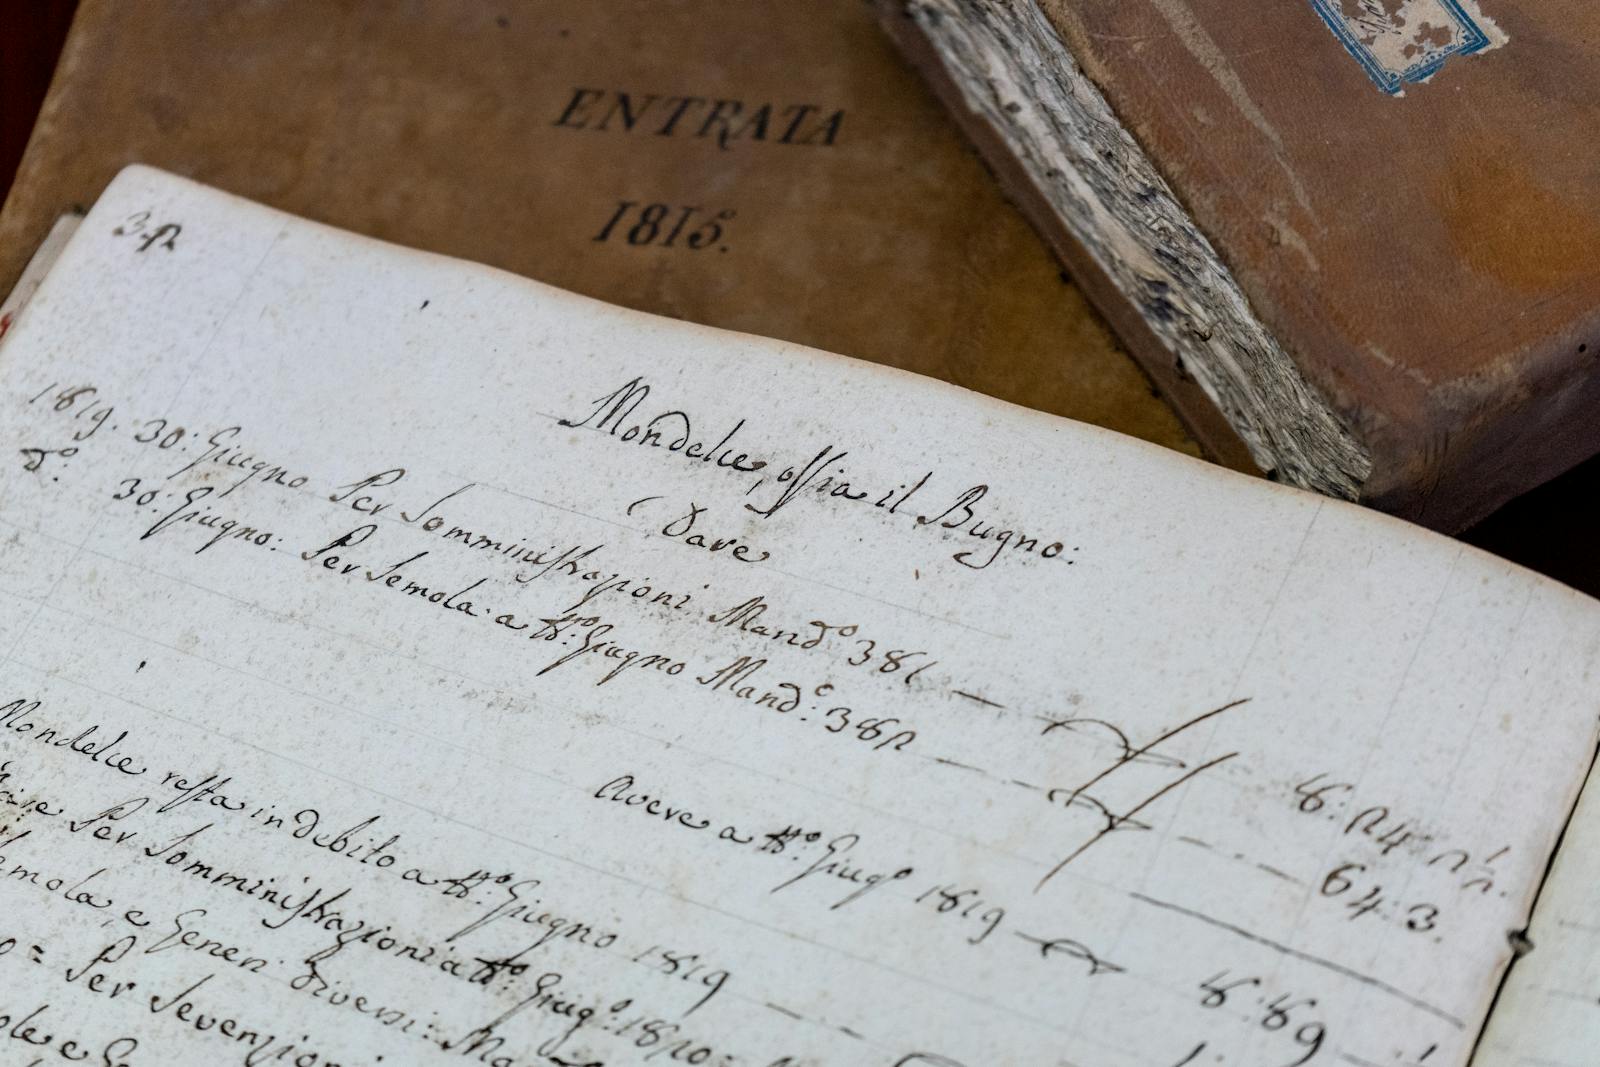 ENTRATA
1815.
32
Mondelce, ossia il Bugno:
Dare
1819. 30: Giugno Per Somministrazioni Mand.o 381
d.o: 30: Giugno: Per Semola a tt.o: Giugno Mand.o: 382
8: 24 2 1/2.
64 3.
Avere a tt.o: Giug.o 1819
8: 89
Mondelce resta in debito a tt.o: Giugno 1819
Per Somministrazioni a tt.o: Giug.o: 1820=
e Generi diversi:
= Per Sevenzioni
e